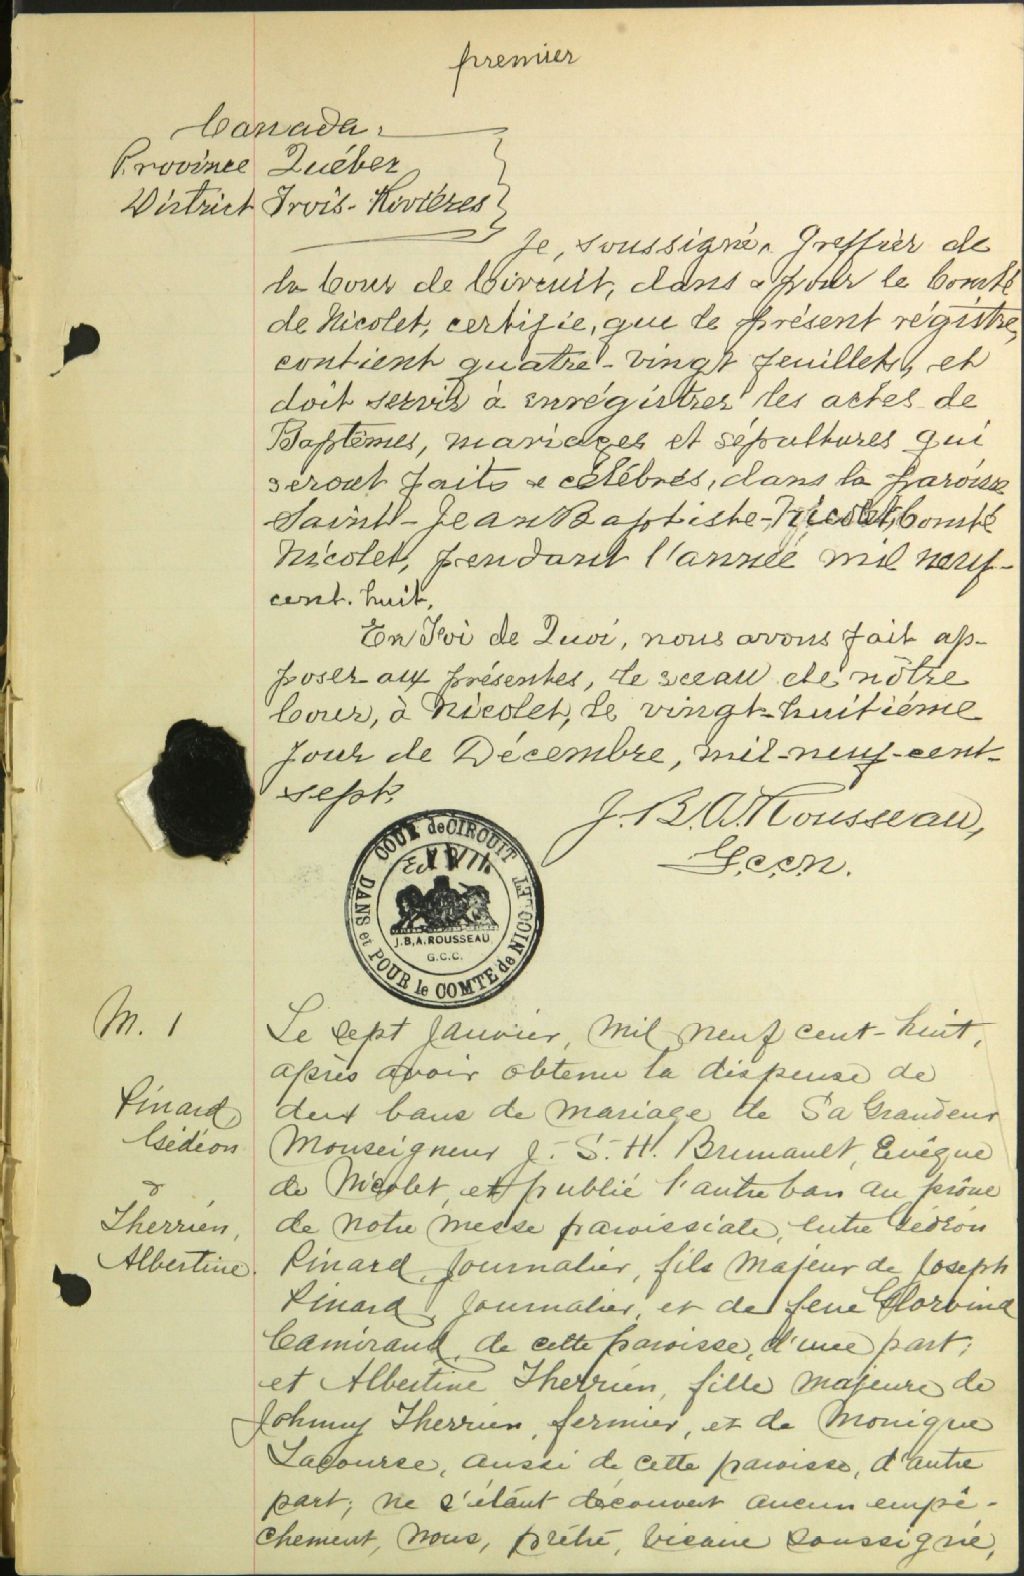 premier
Canada,
Province Québec
District Trois-Rivières
Je, soussigné, Greffier de
la Cour de Circuit, dans & pour le Comté
de Nicolet, certifie, que le présent régistre,
contient quatre-vingt feuillets, et
doit servir à enrégistrer les actes de
Baptêmes, mariages et sépultures qui
seront faits & célébrés, dans la paroisse
Saint-Jean Baptiste-Nicolet, Comté
Nicolet, pendant l'année mil neuf-
cent. huit.
En Foi de Quoi, nous avons fait ap-
poser aux présentes, le sceau de nôtre
Cour, à Nicolet, le vingt-huitiéme
jour de Décembre, mil-neuf-cent-
sept.
J. B. A. Rousseau,
G.c.c.n.
COUR de CIRCUIT
DANS et POUR le COMTE de NICOLET
J.B.A. ROUSSEAU
G.C.C.
M. 1
Pinard,
Gédéon
&
Therrien,
Albertine.
Le sept Janvier, mil neuf cent-huit,
après avoir obtenu la dispense de
deux bans de mariage de Sa Grandeur
Monseigneur J.-S.-H. Brunault, Evêque
de Nicolet, et publié l'autre ban au prône
de notre messe paroissiale, entre Gédéon
Pinard, journalier, fils majeur de Joseph
Pinard, journalier, et de feue Glorvina
Camirand, de cette paroisse, d'une part;
et Albertine Therrien, fille majeure de
Johnny Therrien, fermier, et de Monique
Lacourse, aussi de cette paroisse, d'autre
part; ne s'étant découvert aucun empê-
chement, nous, prêtre, vicaire soussigné,